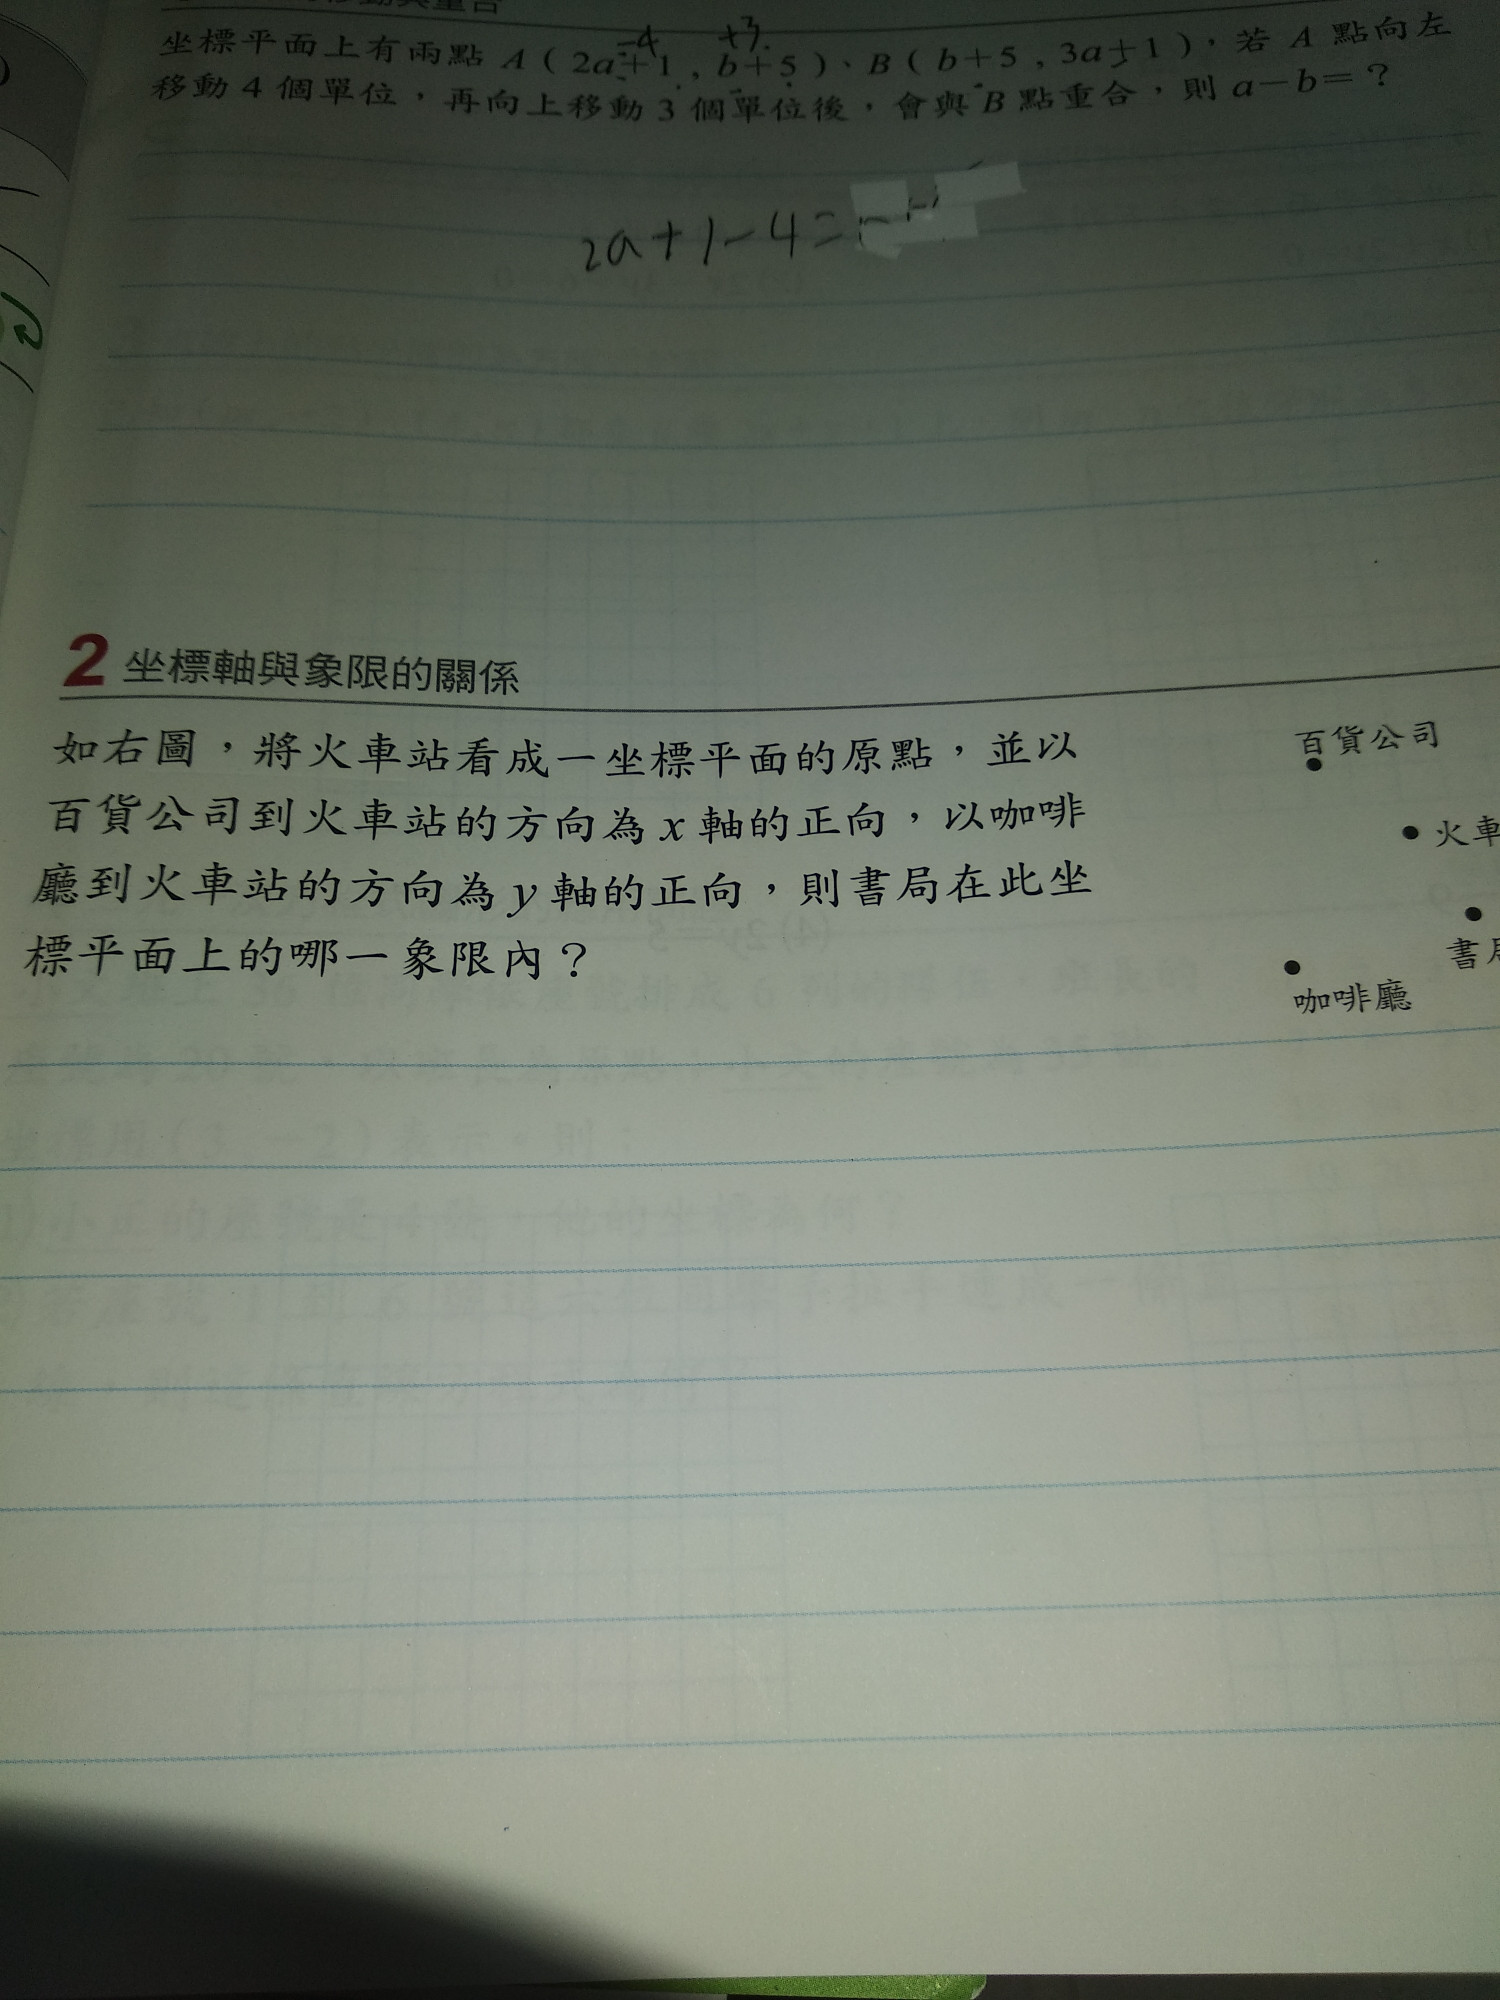 坐標平面上有兩點 A（2a+1 , b+5）、B（b+5 , 3a+1），若 A 點向左
-4 +3
移動 4 個單位，再向上移動 3 個單位後，會與 B 點重合，則 a－b＝？
2a+1-4=
2 坐標軸與象限的關係
如右圖，將火車站看成一坐標平面的原點，並以
百貨公司到火車站的方向為 x 軸的正向，以咖啡
廳到火車站的方向為 y 軸的正向，則書局在此坐
標平面上的哪一象限內？
百貨公司
火車
書局
咖啡廳